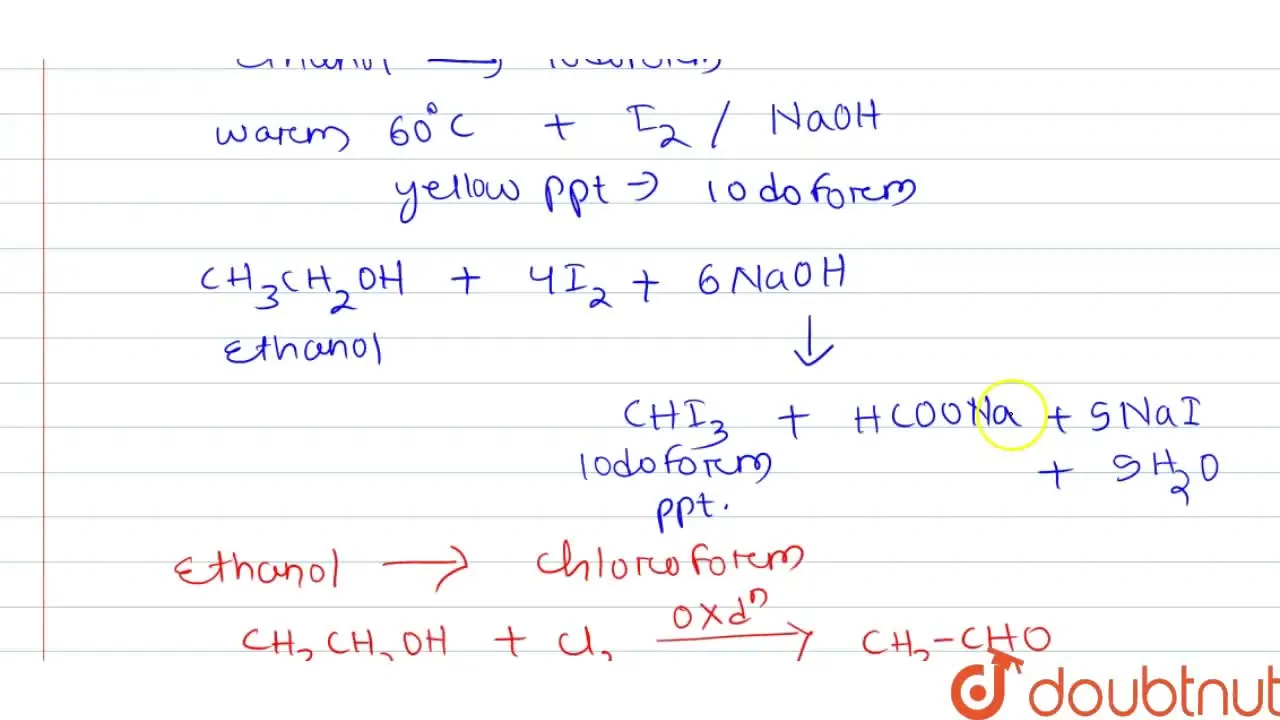 warm 60°C + I₂ / NaOH
yellow ppt → Iodoform
CH₃CH₂OH + 4I₂ + 6NaOH
Ethanol ↓
CHI₃ + HCOONa + 5NaI
Iodoform + 5H₂O
ppt.
Ethanol → Chloroform
oxdⁿ
CH₃CH₂OH + Cl₂ → CH₃-CHO
doubtnut